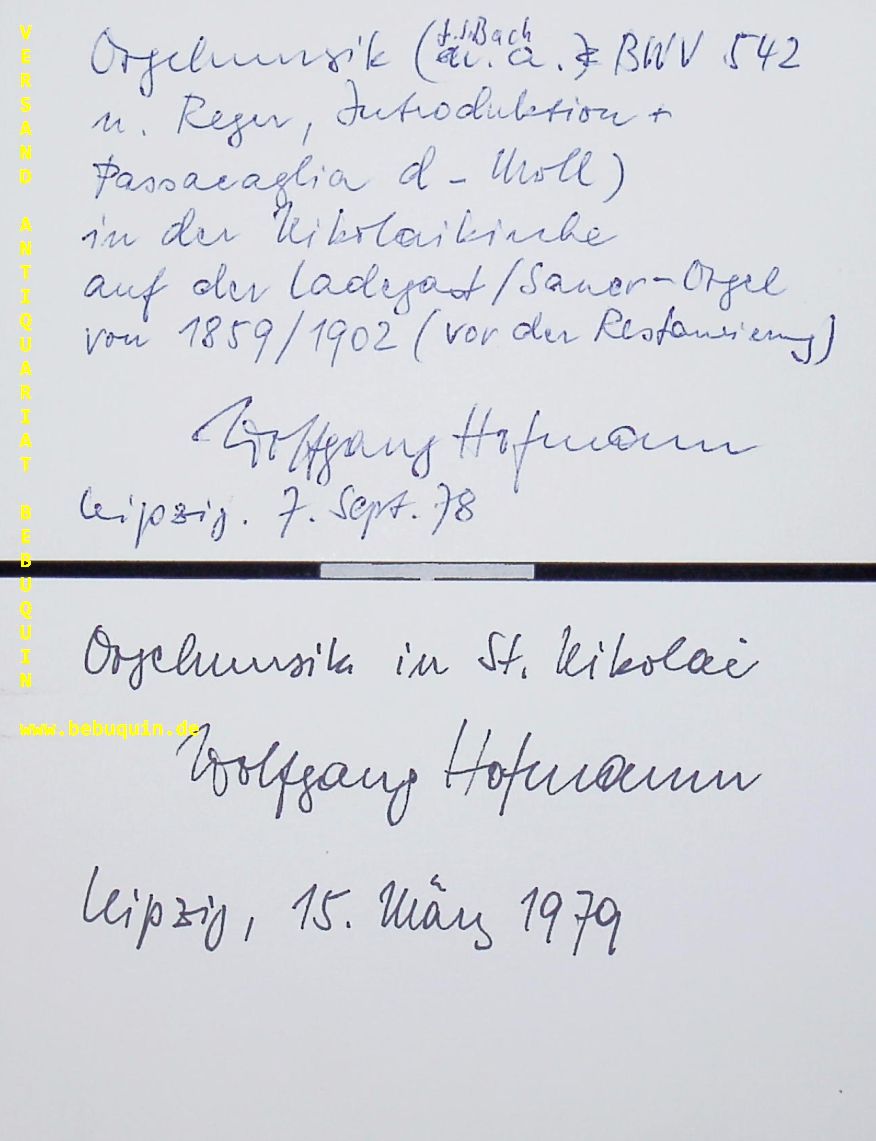 J.S.Bach
Orgelmusik (u. a. BWV 542
u. Reger, Introduktion +
Passacaglia d-Moll)
in der Nikolaikirche
auf der Ladegast/Sauer-Orgel
von 1859/1902 (vor der Restaurierung)
Wolfgang Hofmann
Leipzig. 7. Sept. 78
Orgelmusik in St. Nikolai
Wolfgang Hofmann
Leipzig, 15. März 1979
VERSAND ANTIQUARIAT BEBUQUIN
www.bebuquin.de